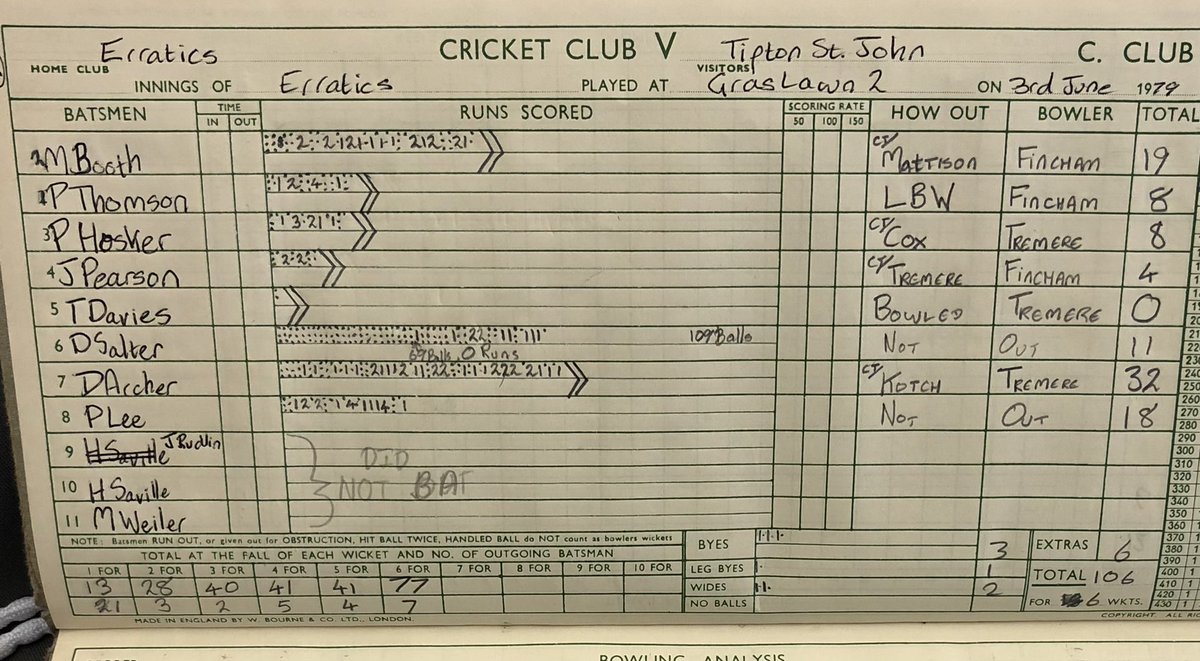 Erratics CRICKET CLUB V Tipton St. John C. CLUB
HOME CLUB VISITORS
INNINGS OF Erratics PLAYED AT Gras Lawn 2 ON 3rd June 1979
BATSMEN TIME RUNS SCORED SCORING RATE HOW OUT BOWLER TOTAL
IN OUT 50 100 150
2 M Booth Ct/ Mattison Fincham 19
1 P Thomson 1 2 4 1 LBW Fincham 8
3 P Hosker 1 3 2 1 1 Ct/ Cox Tremere 8
4 J Pearson 2 2 Ct/ Tremere Fincham 4
5 T Davies Bowled Tremere 0
6 D Salter 1 22 11 111 109 Balls Not Out 11
69 Balls 0 Runs
7 D Archer Ct/ Kotch Tremere 32
8 P Lee 122 1 4 1114 1 Not Out 18
9 H Saville J Rudlin
DID
10 H Saville NOT BAT
11 M Weiler
NOTE: Batsmen RUN OUT, or given out for OBSTRUCTION, HIT BALL TWICE, HANDLED BALL do NOT count as bowlers wickets
BYES 1 1 1 3 EXTRAS 6
TOTAL AT THE FALL OF EACH WICKET AND NO. OF OUTGOING BATSMAN
LEG BYES 1 1
1 FOR 2 FOR 3 FOR 4 FOR 5 FOR 6 FOR 7 FOR 8 FOR 9 FOR 10 FOR
13 28 40 41 41 77
WIDES 1 1 2 TOTAL 106
1 3 2 5 4 7
NO BALLS FOR 6 WKTS.
MADE IN ENGLAND BY W. BOURNE & CO. LTD., LONDON.
COPYRIGHT. ALL RIG
210
220
230
240
250
260
270
280
290
300
310
320
330
340
350
360
370
380 1
390 1
400 1
410 1
420 1
430 1
BOWLING ANALYSIS